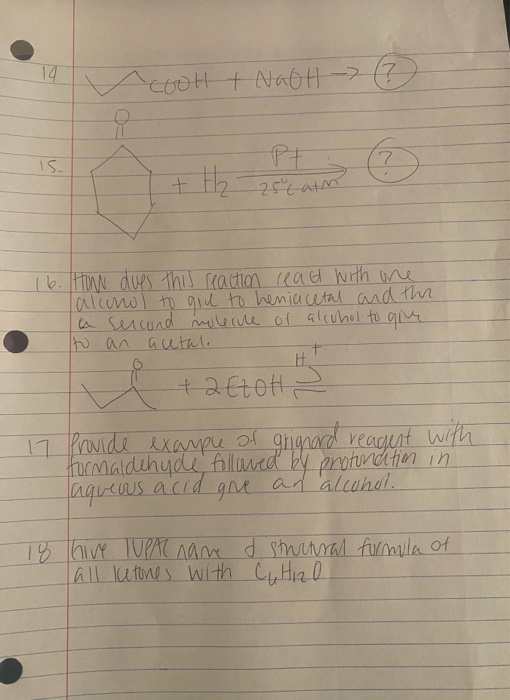 14 COOH + NaOH → ?
O
15. + H₂ Pt 25°C atm → ?
16. How does this reaction react with one
alcohol to give to hemiacetal and the
a second molecule of alcohol to give
to an acetal.
O + 2 EtOH H⁺ ⇌
17 Provide example of grignard reagent with
formaldehyde, followed by protonation in
aqueous acid give an alcohol.
18 Give IUPAC name & structural formula of
all ketones with C₆H₁₂O